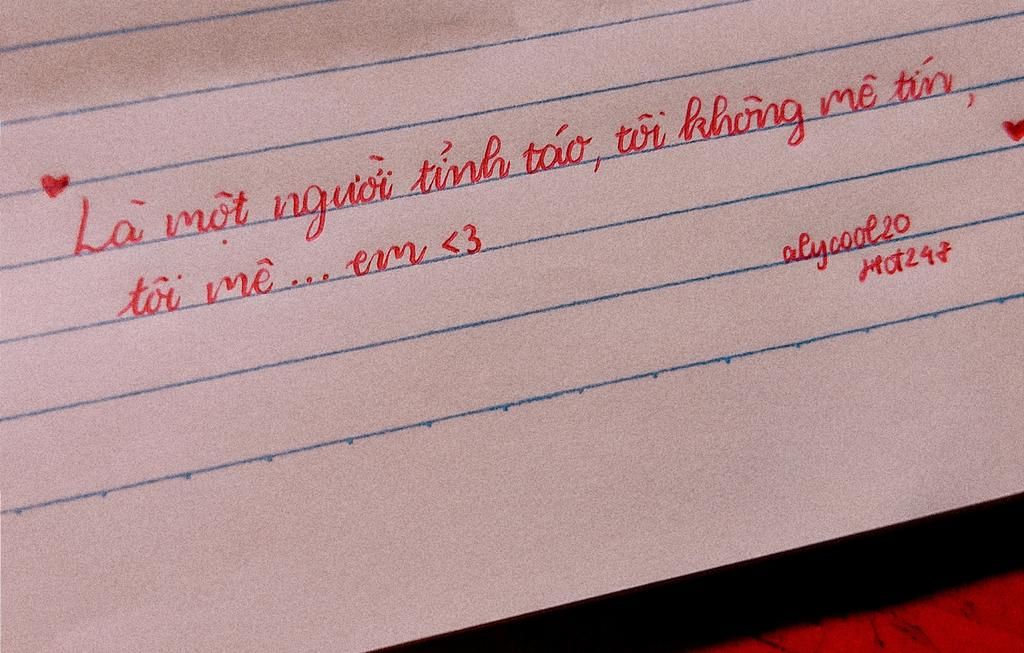 Là một người tỉnh táo, tôi không mê tín,
tôi mê... em <3
alycool20
Hot247